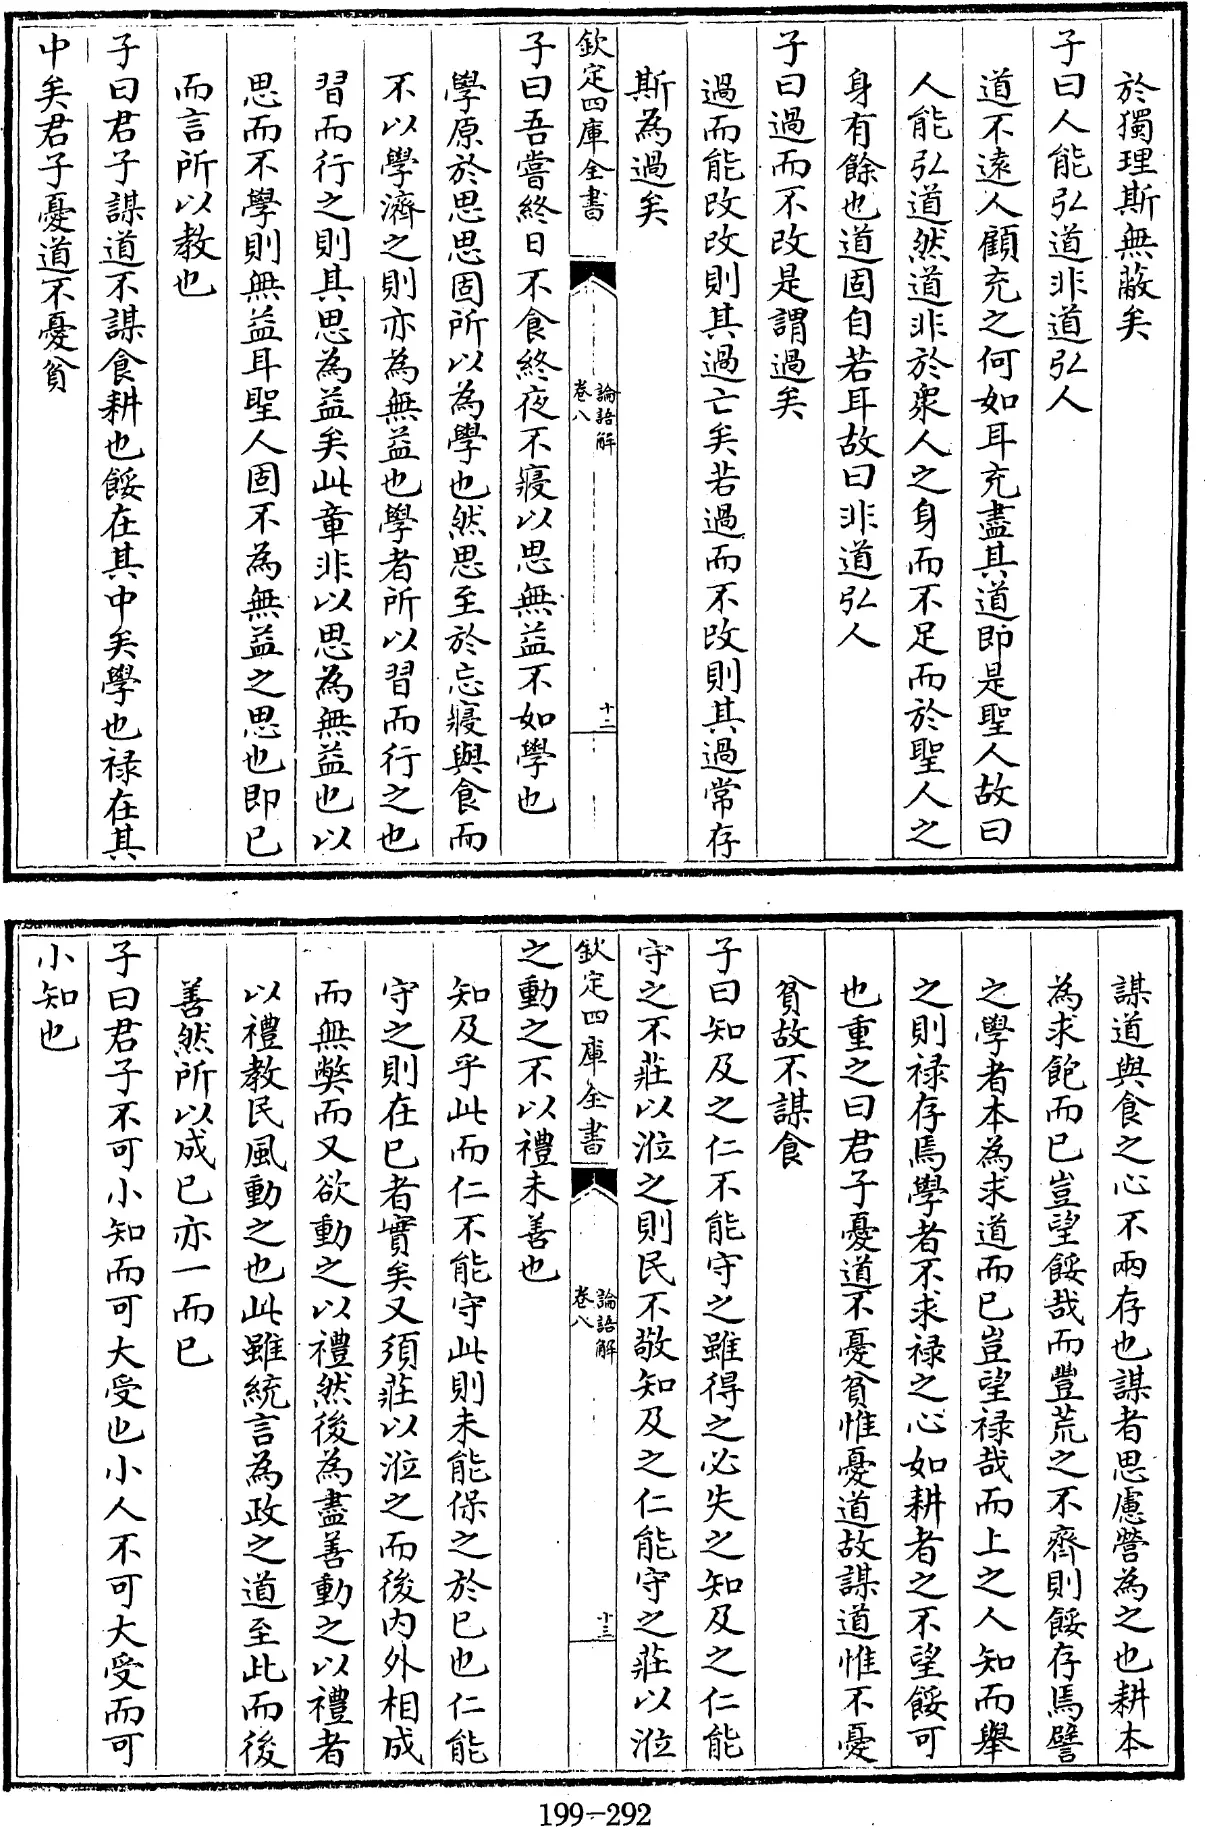 於獨理斯無蔽矣
子曰人能弘道非道弘人
道不遠人顧充之何如耳充盡其道即是聖人故曰
人能弘道然道非於衆人之身而不足而於聖人之
身有餘也道固自若耳故曰非道弘人
子曰過而不改是謂過矣
過而能改改則其過亡矣若過而不改則其過常存
斯為過矣
欽定四庫全書
論語解
卷八
十二
子曰吾嘗終日不食終夜不寢以思無益不如學也
學原於思思固所以為學也然思至於忘寢與食而
不以學濟之則亦為無益也學者所以習而行之也
習而行之則其思為益矣此章非以思為無益也以
思而不學則無益耳聖人固不為無益之思也即已
而言所以教也
子曰君子謀道不謀食耕也餒在其中矣學也祿在其
中矣君子憂道不憂貧
謀道與食之心不兩存也謀者思慮營為之也耕本
為求飽而已豈望餒哉而豐荒之不齊則餒存焉譬
之學者本為求道而已豈望祿哉而上之人知而舉
之則祿存焉學者不求祿之心如耕者之不望餒可
也重之曰君子憂道不憂貧惟憂道故謀道惟不憂
貧故不謀食
子曰知及之仁不能守之雖得之必失之知及之仁能
守之不莊以涖之則民不敬知及之仁能守之莊以涖
欽定四庫全書
論語解
卷八
十三
之動之不以禮未善也
知及乎此而仁不能守此則未能保之於已也仁能
守之則在已者實矣又須莊以涖之而後內外相成
而無弊而又欲動之以禮然後為盡善動之以禮者
以禮教民風動之也此雖統言為政之道至此而後
善然所以成已亦一而已
子曰君子不可小知而可大受也小人不可大受而可
小知也
199-292